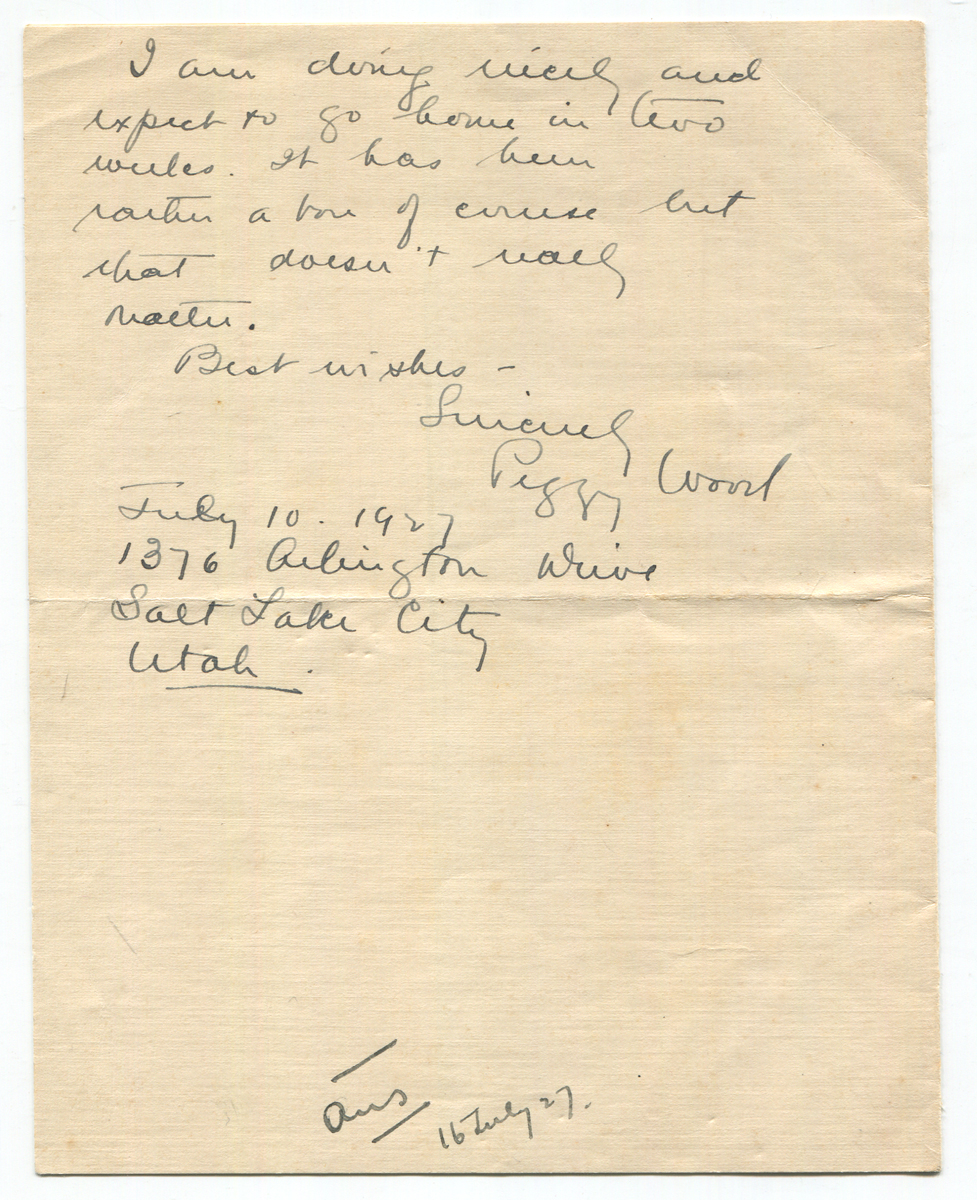 I am doing nicely and
expect to go home in two
weeks. It has been
rather a bore of course but
that doesn't really
matter.
Best wishes -
Sincerely
Peggy Wood
July 10. 1927
1376 Arlington Drive
Salt Lake City
Utah.
Ans
16 July 27.